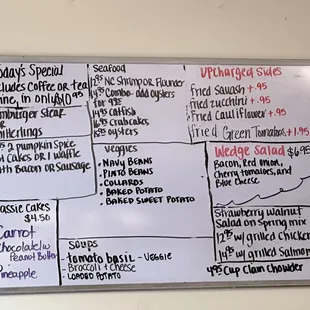 oday's Special
cludes Coffee or tea
ine, in only $10.95
amburger Steak
or
hitterlings
2 pumpkin Spice
t Cakes or 1 waffle
ith Bacon or Sausage
assie Cakes
$4.50
Carrot
Chocolate w
Peanut Butter
Pineapple
Seafood
12.95 NC Shrimp or Flounder
14.95 Combo - add oysters
for 9.95
14.95 Catfish
16.95 Crabcakes
18.95 oysters
Veggies
• NAVY BEANS
• PINTO BEANS
• COLLARDS
• BAKED POTATO
• BAKED SWEET POTATO
Soups
- tomato basil - VEGGIE
- Broccoli + cheese
- LOADED POTATO
Upcharged Sides
fried Squash + .95
fried zucchini + .95
Fried Cauliflower + .95
fried Green Tomatoes + 1.95
Wedge Salad $6.95
Bacon, Red onion,
Cherry tomatoes, and
Blue Cheese
Strawberry Walnut
Salad on Spring mix
12.95 w/ grilled Chicken
14.95 w/ grilled Salmon
4.95 Cup Clam Chowder